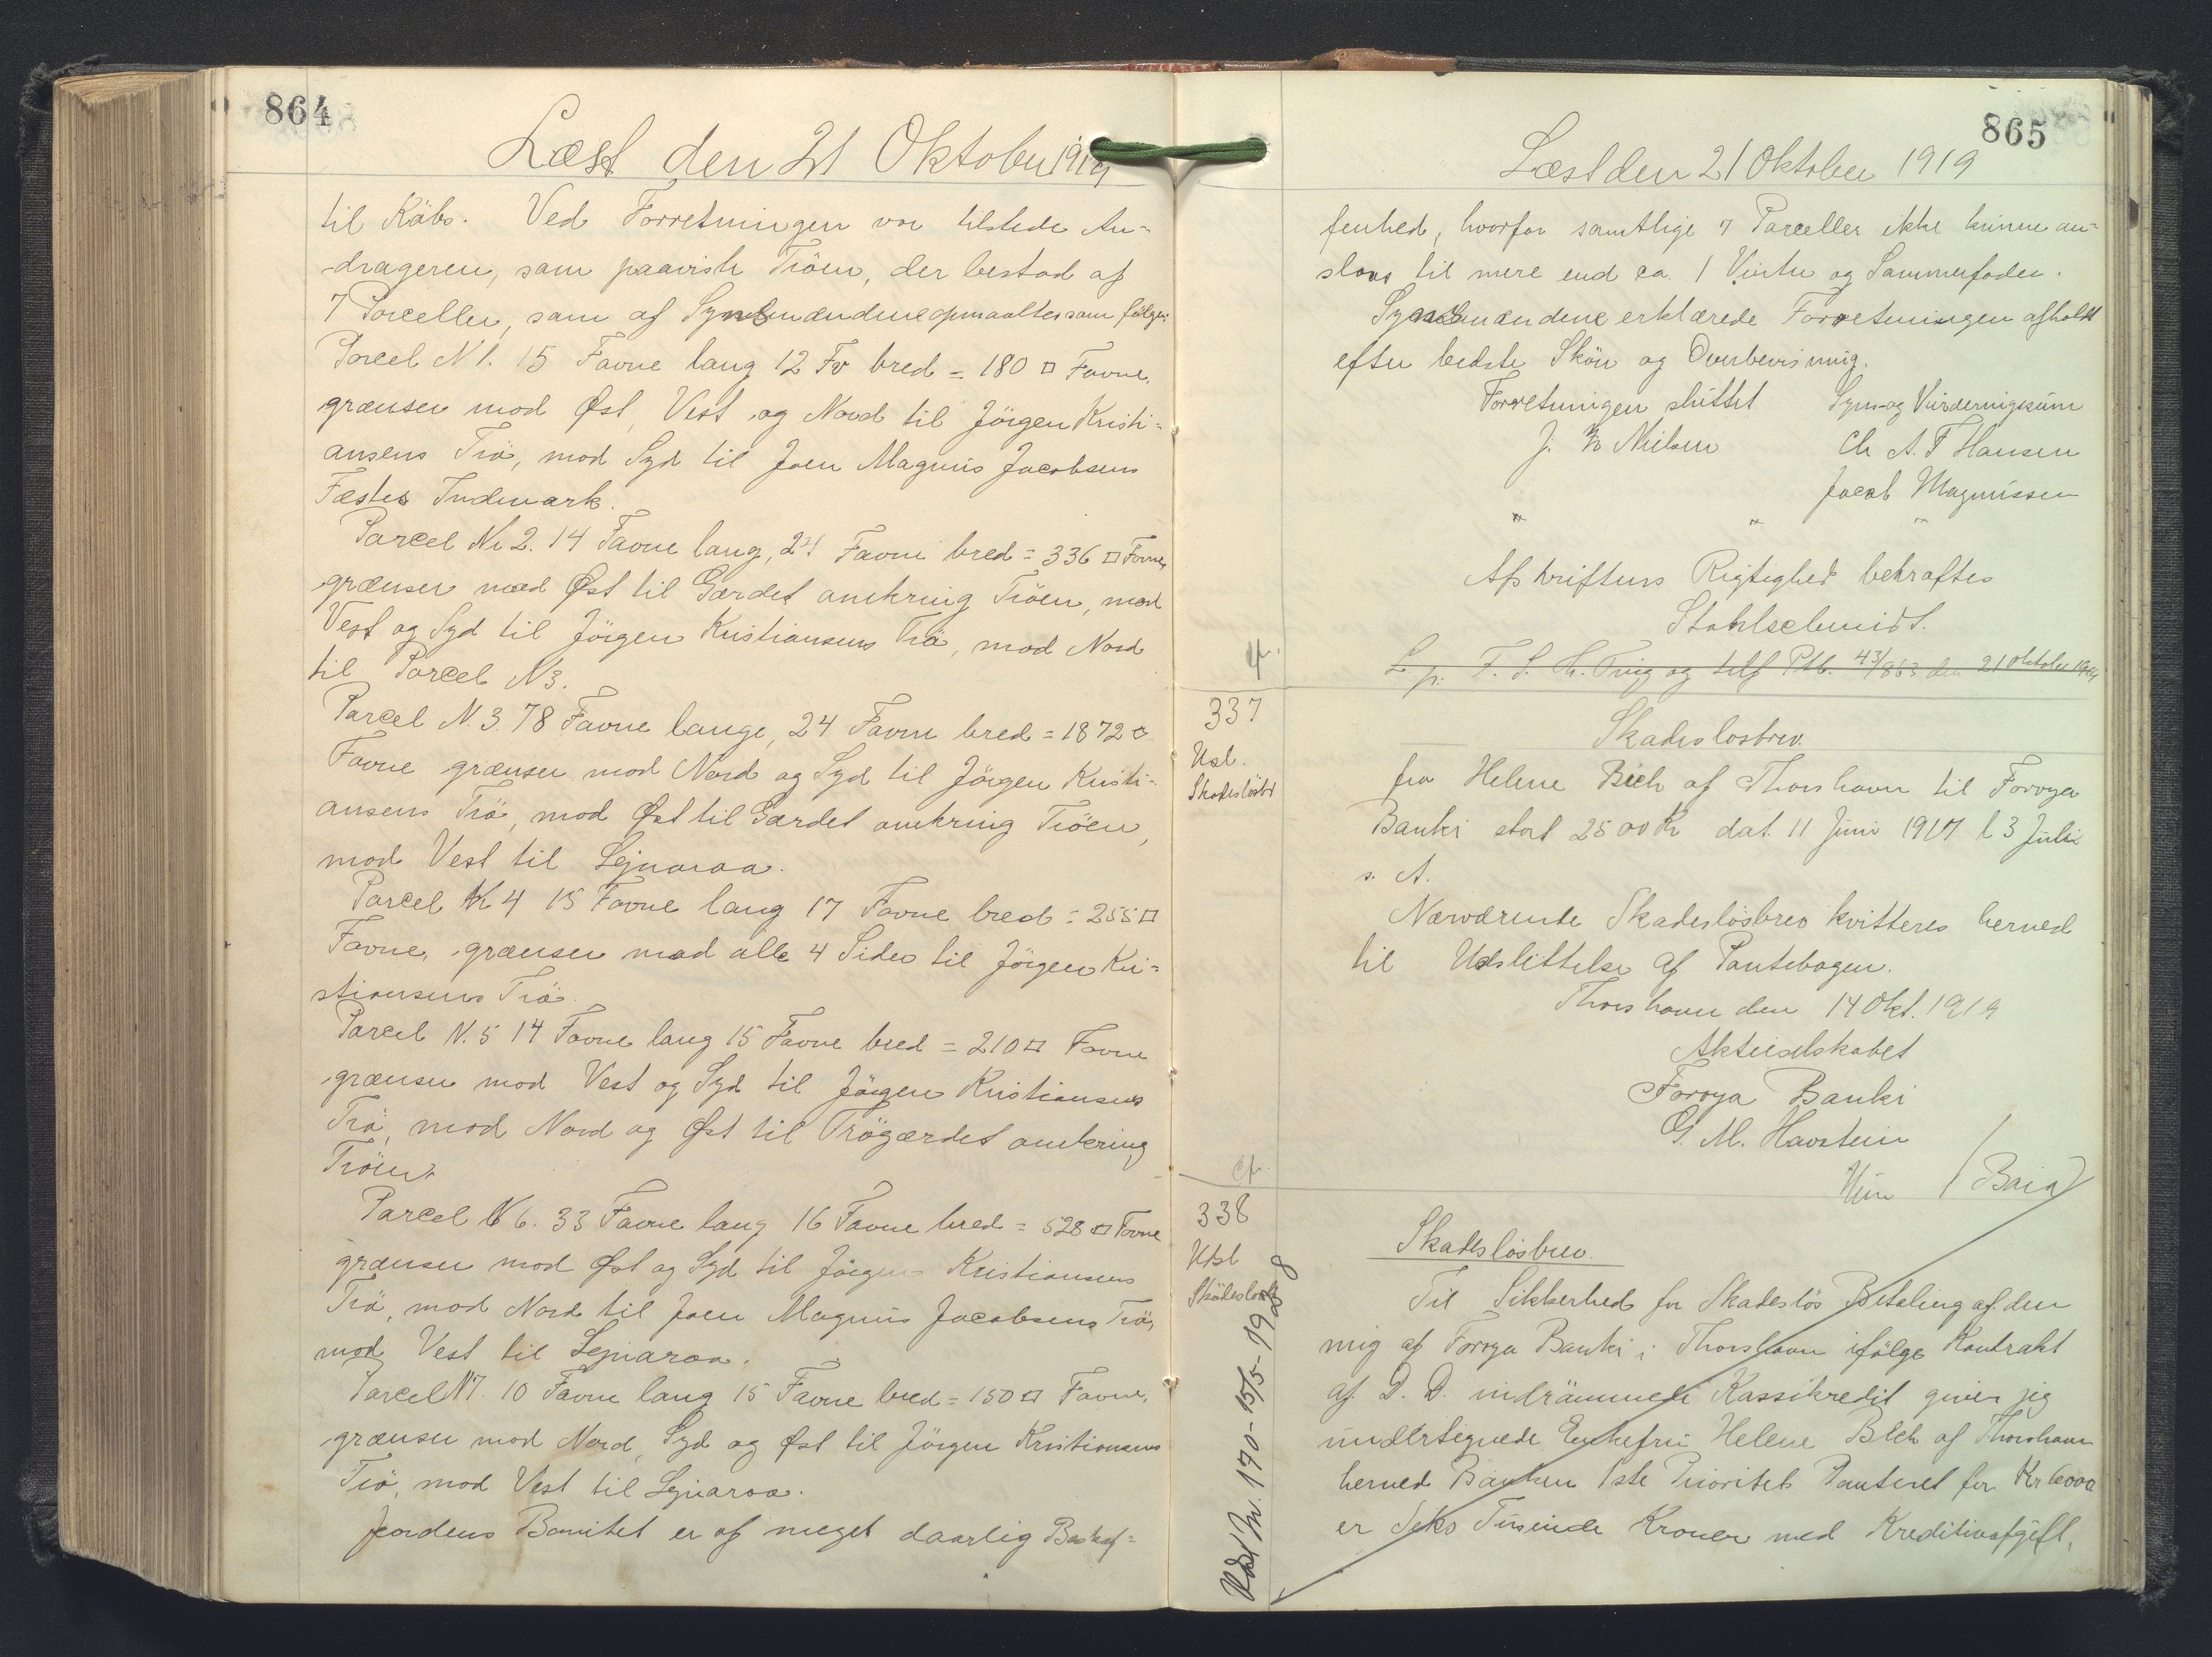 864
Læst den 21 Oktober 1919
til Købs. Ved Forretningen var tilstede An-
drageren, som paaviste Trøen, der bestod af
7 Parceller, som af Synsmændene opmaaltes som følger:
Parcel N 1. 15 Favne lang 12 Fv bred = 180 □ Favne,
grænser mod Øst, Vest og Nord til Jörgen Kristi-
ansens Trö, mod Syd til Joen Magnus Jacobsens
Fæstes Indmark.
Parcel Nr 2. 14 Favne lang, 24 Favne bred = 336 □ Favne,
grænser mod Øst til Gærdet omkring Tröen, mod
Vest og Syd til Jörgen Kristiansens Trö, mod Nord
til Parcel N 3.
Parcel N. 3. 78 Favne lange, 24 Favne bred = 1872 □
Favne grænser mod Nord og Syd til Jörgen Kristi-
ansens Trö, mod Øst til Gærdet omkring Tröen,
mod Vest til Sejnaraa.
Parcel N 4 15 Favne lang 17 Favne bred = 255 □
Favne, grænser mod alle 4 Sider til Jörgen Kri-
stiansens Trö.
Parcel N. 5 14 Favne lang 15 Favne bred = 210 □ Favne
grænser mod Vest og Syd til Jörgen Kristiansens
Trö, mod Nord og Øst til Trögærdet omkring
Tröen.
Parcel N 6. 33 Favne lang 16 Favne bred = 528 □ Favne
grænser mod Øst og Syd til Jörgens Kristiansens
Trö, mod Nord til Joen Magnus Jacobsens Trö,
mod Vest til Sejnaraa.
Parcel N 7. 10 Favne lang 15 Favne bred = 150 □ Favne,
grænser mod Nord, Syd og Øst til Jörgen Kristiansens
Trö, mod Vest til Sejnaraa.
Jordens Bonitet er af meget daarlig Beskaf-
865
Læst den 21 Oktober 1919
fenhed, hvorfor samtlige 7 Parceller ikke kunne an-
slaas til mere end ca. 1 Vinter og Sommerfoder.
Synsmændene erklærede Forretningen afholdt
efter bedste Skön og Overbevisning.
Forretningen sluttet Syns- og Vurderingssum
J. Nielsen Ch A. F Hansen
Jacob Magnussen
" " "
Afskriftens Rigtighed bekræftes
Stahlschmidt.
L. p. F. S. H. Ting og tilf Ptb. 43/863 den 21 Oktober 1919
337
Usl.
Skadeslösbr
Skadeslosbrev.
fra Helene Bech af Thorshavn til Foroya
Banki stort 2500 Kr dat. 11 Juni 1917 l 3 Juli
s. A.
Nærværende Skadeslösbrev kvitteres herved
til Udslettelse af Pantebogen.
Thorshavn den 14 Okt. 1919
Aktieselskabet
Foroya Banki
G. M. Havstein
cf.
338
Usl
Skadeslosbr
Udsl Nr. 170 - 15/5 - 1928
Skadeslösbrev.
Til Sikkerhed for Skadeslös Betaling af den
mig af Foroya Banki i Thorshavn ifölge Kontrakt
af D. D. indrömmede Kassekredit giver jeg
undertegnede Enkefru Helene Bech af Thorshavn
herved Banken 1ste Prioritets Panteret for Kr 6000
er Seks Tusinde Kroner med Kreditivafgift,